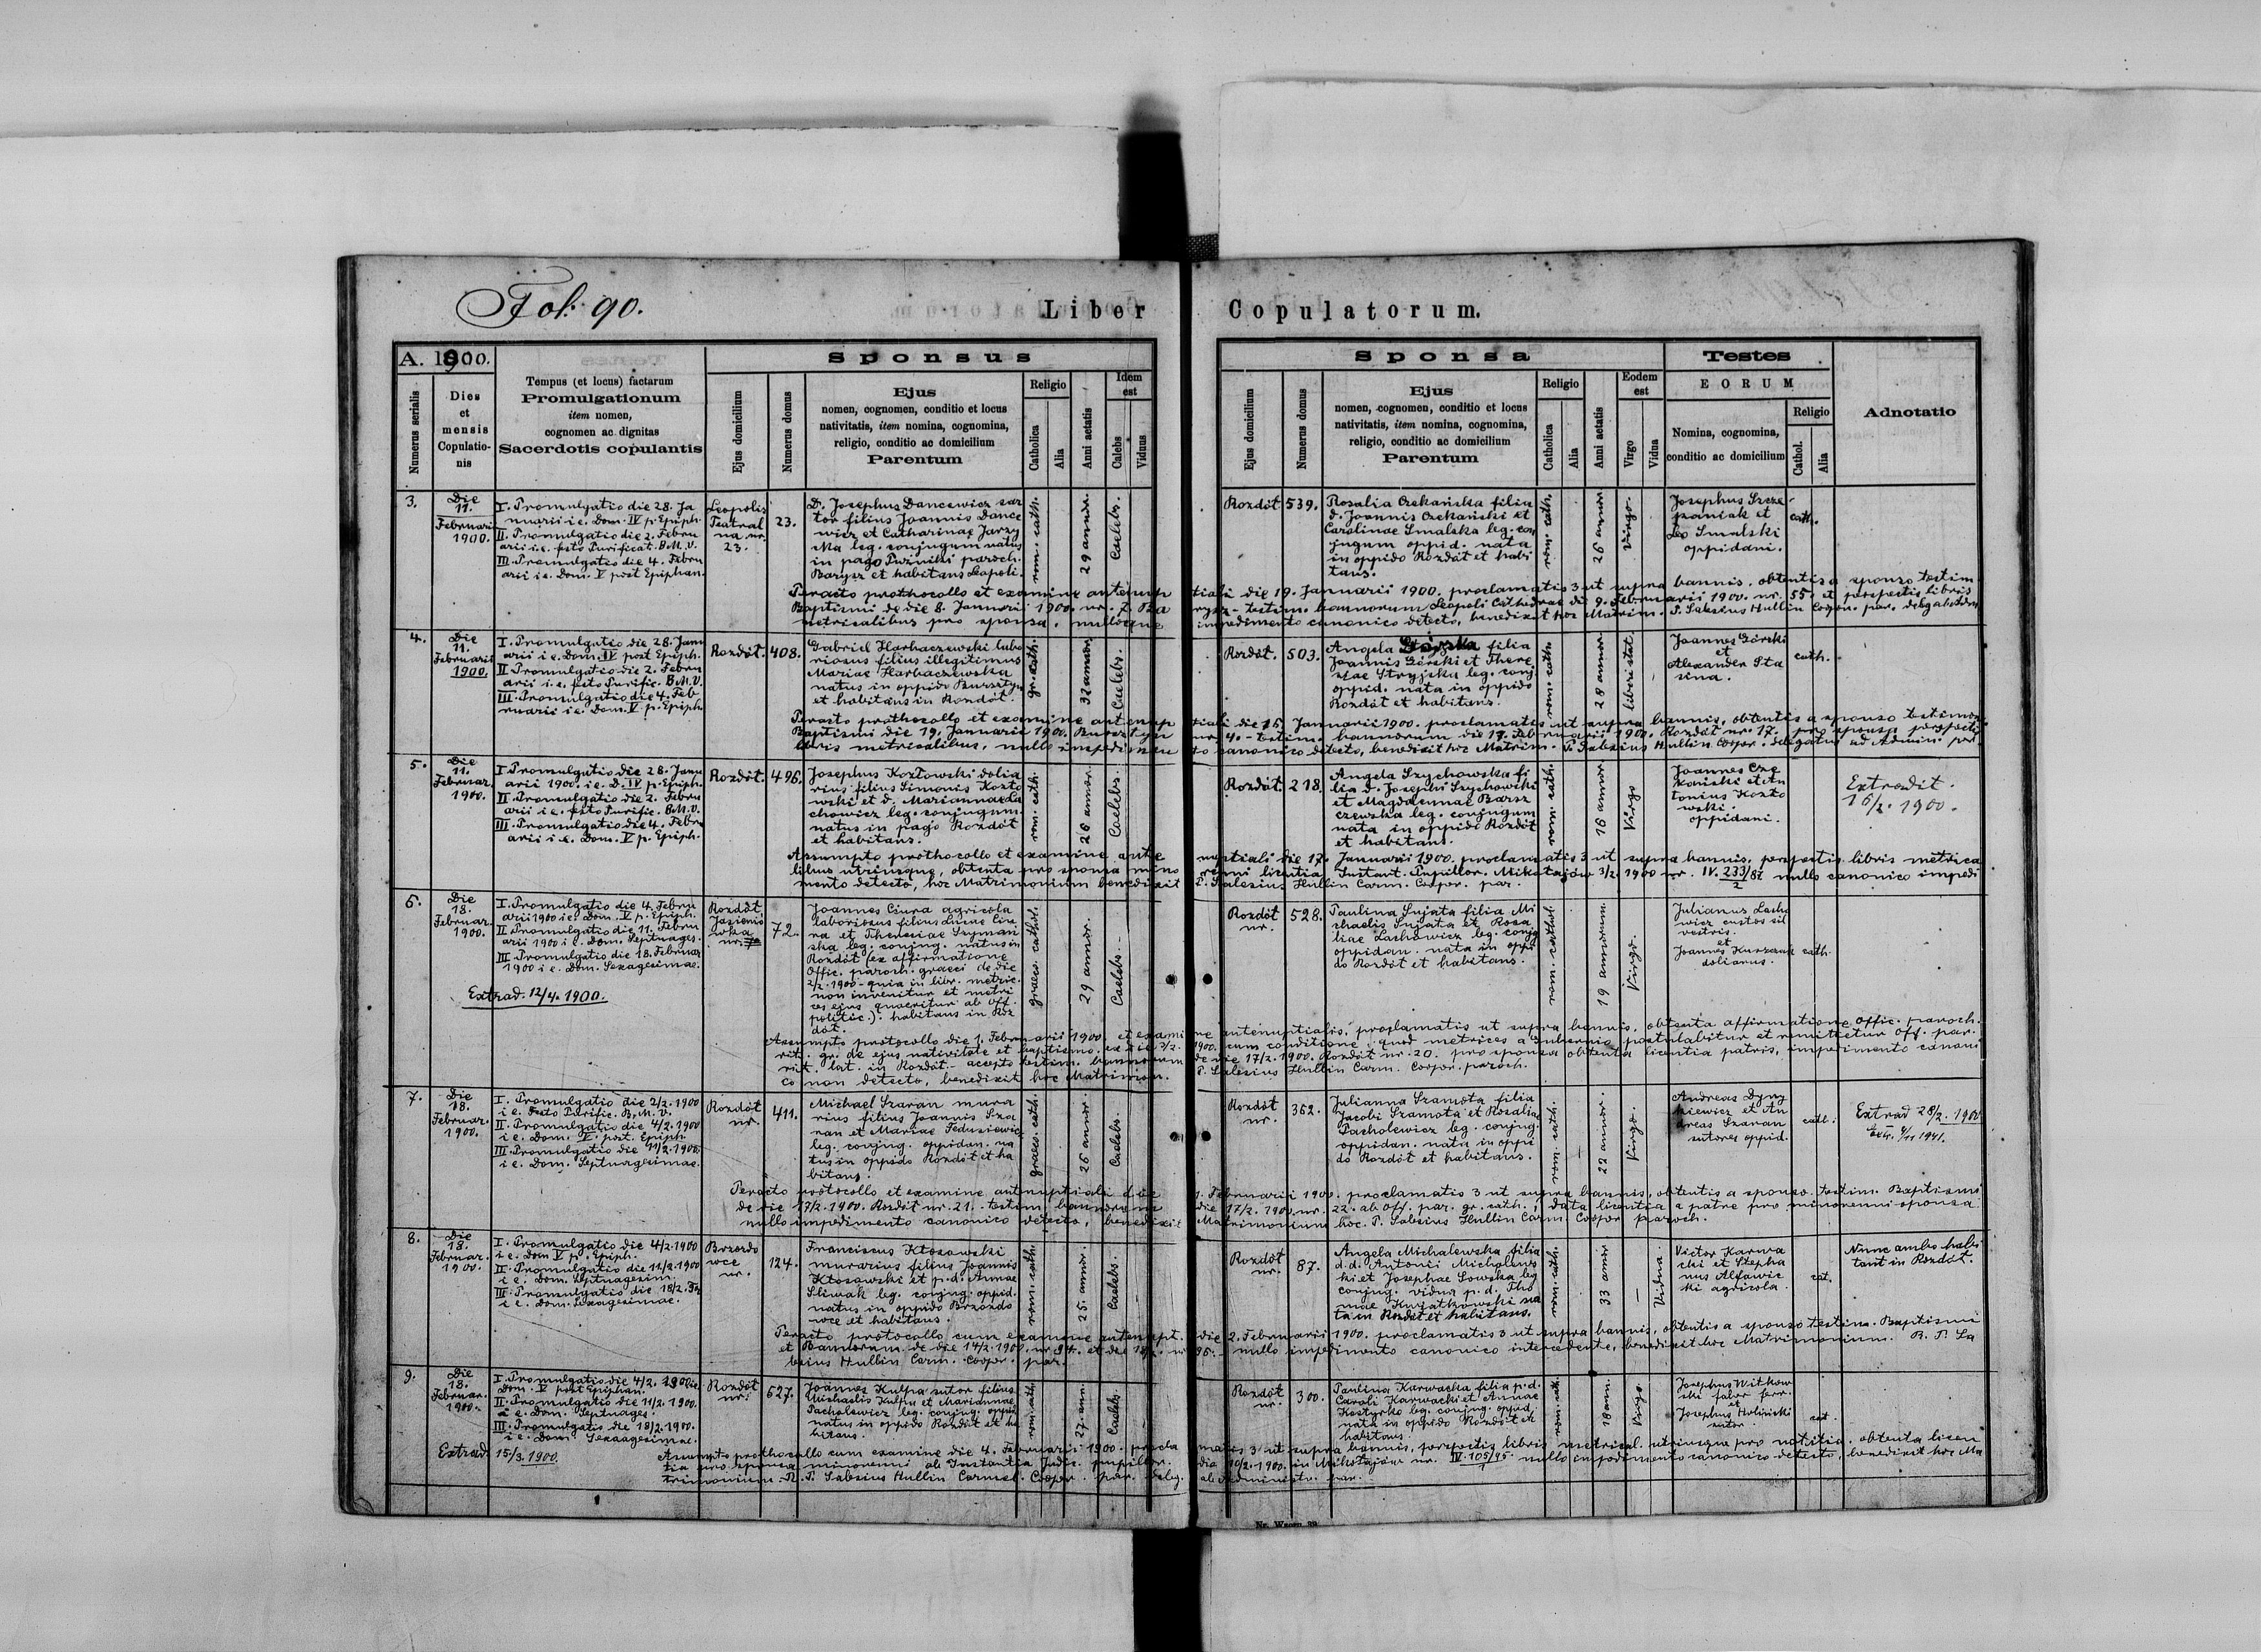 Fol. 90.
Liber Copulatorum.
A. 1900.
Sponsus
Sponsa
Testes
Numerus serialis
Dies
et
mensis
Copulatio-
nis
Tempus (et locus) factarum
Promulgationum
item nomen,
cognomen ac dignitas
Sacerdotis copulantis
Ejus domicilium
Numerus domus
Ejus
nomen, cognomen, conditio et locus
nativitatis, item nomina, cognomina,
religio, conditio ac domicilium
Parentum
Religio
Catholica
Alia
Anni aetatis
Idem
est
Calebs
Viduus
Ejus domicilium
Numerus domus
Ejus
nomen, cognomen, conditio et locus
nativitatis, item nomina, cognomina,
religio, conditio ac domicilium
Parentum
Religio
Catholica
Alia
Anni aetatis
Eodem
est
Virgo
Vidua
EORUM
Nomina, cognomina,
conditio ac domicilium
Religio
Cathol.
Alia
Adnotatio
3.
Die
11.
Februarii
1900.
I. Promulgatio die 28. Ja
nuarii i e. Dom. IV p. Epiph.
II. Promulgatio die 2. Febru
arii i.e. festo Purificat. B.M.V.
III. Promulgatio die 4. Febru
arii i e. Dom. V post Epiphan.
Leopolis
Teatral
na nr.
23.
23.
D. Josephus Dancewicz sar
tor filius Joannis Dance
wicz et Catharinae Jarzy
leg. conjugum natus
in pago Puźniki paroch.
Barysz et habitans Leopoli.
rom. cath.
29 annor.
Caelebs.
Rozdół
539.
Rosalia Czekańska filia
d. Joannis Czekański et
Carolinae Smalska leg. con
jugum oppid. nata
in oppido Rozdół et habi
tans.
rom. cath.
26 annor
Virgo
Josephus Szcze
paniak et
Leo Smalski
oppidani.
cath.
Peracto prothocollo et examine antenup
tiali die 19. Januarii 1900. proclamatis 3 ut supra bannis, obtentis a sponso testim.
Baptismi de die 8. Januarii 1900. nr. 7. Ba
rysz - testim. bannorum Leopoli Cathedrae die 9. Februarii 1900. nr. 55. et perspectis libris
metricalibus pro sponsa, nulloque
impedimento canonico detecto, benedixit hoc Matrim. P. Salesius Hullin Coop. par.
4.
Die
11.
Februarii
1900.
I. Promulgatio die 28. Janu
arii i e. Dom. IV post Epiph.
II Promulgatio die 2. Febru
arii i.e. festo Purific. B.M.V.
III. Promulgatio die 4. Feb
ruarii i e. Dom. V p. Epiph.
Rozdół.
408.
Gabriel Harbaczewski labo
riosus filius illegitimus
Mariae Harbaczewska
natus in oppido Bursztyn
et habitans in Rozdół.
gr. cath.
32 annor
Caelebs.
Rozdół.
503.
Angela Górska filia
Joannis Górski et There
siae Stryjska leg. conj.
oppid. nata in oppido
Rozdół et habitans.
rom. cath.
28 annor
liberi stat.
Joannes Górski
et
Alexander Sta
sina.
cath.
Peracto prothocollo et examine antenup
tiali die 15. Januarii 1900. proclamatis ut supra bannis, obtentis a sponso testimon.
Baptismi die 19. Januarii 1900. Bursztyn
nr. 40 - testim. bannorum die 17. Februarii 1900. Rozdół nr. 17. pro sponsa perspectis
libris metricalibus, nullo impedimen
to canonico detecto, benedixit hoc Matrim. P. Salesius Hullin Coop. delegatus ad Admin. par.
5.
Die
11.
Februar.
1900.
I Promulgatio die 28. Janu
arii 1900. i e. D. IV p. Epiph.
II Promulgatio die 2. Febru
arii i.e. festo Purific. B.M.V.
III. Promulgatio die 4. Febru
arii i e. Dom. V p. Epiph.
Rozdół.
496.
Josephus Kozłowski dolia
rius filius Simonis Kozło
wski et d. Mariannae La
chowicz leg. conjugum
natus in pago Rozdół
et habitans.
rom. cath.
26 annor.
Caelebs.
Rozdół.
218.
Angela Szychowska fi
lia d. Josephi Szychowski
et Magdalenae Barsz
czewska leg. conjugum
nata in oppido Rozdół
et habitans.
rom. cath.
16 annor
Virgo
Joannes Cze
kański et An
tonius Kozło
wski.
oppidani.
Extradit.
16/2. 1900.
Assumpto prothocollo et examine ante
nuptiali die 17. Januarii 1900. proclamatis 3 ut supra bannis, perspectis libris metrica
libus utriusque, obtenta pro sponsa mino
renni licentia Instant. Pupillar. Mikołajów 3/2 1900 nr. IV. 233/87 2 nullo canonico impedi
mento detecto, hoc Matrimonium benedixit
P. Salesius Hullin Carm. Coop. par.
6.
Die
18.
Februar.
1900.
I. Promulgatio die 4. Febru
arii 1900 i e. Dom. V p. Epiph.
II Promulgatio die 11. Febru
arii 1900 i e. Dom. Septuages.
III Promulgatio die 18. Februar
1900 i e. Dom. Sexagesimae.
Extrad. 12/4. 1900.
Rozdół
nr.
72.
Joannes Ciura agricola
laboriosus filius Lucae Ciu
ra et Theresiae Szyman
ska leg. conjug. natus in
Rozdół (ex affirmatione
Offic. paroch. graeci de die
2/2. 1900 - quia in libr. metric.
non invenitur et metri
ces ejus quaeritur ab Off.
politic.). habitans in Roz
dół.
graec. cathol.
29 annor.
Caelebs.
Rozdół
nr.
528.
Paulina Sujata filia Mi
chaelis Sujata et Rosa
liae Lachowicz leg. conjg
oppidan. nata in oppi
do Rozdół et habitans.
rom. cathol.
19 annorum.
Virgo.
Julianus Lacho
wicz custos sil
vestris.
et
Joannes
doliarius.
cath.
Assumpto protocollo die 1. Februarii 1900 et exami
ne antenuptialis, proclamatis ut supra bannis, obtenta affirmatione Offic. paroch.
rit. gr. de ejus nativitate et baptismo ex die 2/2.
1900. cum conditione: quod metrices a Gubernio postulabitur et remittetur Off. par.
rit. lat. in Rozdół - accepto testim. bannorum
de die 17/2. 1900. Rozdół nr. 20. pro sponsa obtenta licentia patris, impedimento canoni
co non detecto, benedixit hoc Matrimon.
P. Salesius Hullin Carm. Coop. paroch.
7.
Die
18.
Februar.
1900.
I. Promulgatio die 2/2. 1900
i e. Festo Purific. B.M.V.
II. Promulgatio die 4/2. 1900
i e. Dom. V. post. Epiph.
III. Promulgatio die 11/2. 1900.
i e. Dom. Septuagesimae.
Rozdół
nr.
411.
Michael Szaran mura
rius filius Joannis Sza
ran et Mariae Fedusiewicz
leg. conjug. oppidan. na
tus in oppido Rozdół et ha
bitans.
graec. cath.
26 annor.
Caelebs
Rozdół
nr.
362.
Julianna Szamota filia
Jacobi Szamota et Rosaliae
Pacholewicz leg. conjug.
oppidan. nata in oppi
do Rozdół et habitans.
rom. cath.
22 annor.
Virgo.
Andreas Dyny
kiewicz et An
dreas Szaran
sutores oppid.
cath.
Extrad 28/2. 1900
Extr. 4/11 1941.
Peracto protocollo et examine antenuptiali die
1. Februarii 1900. proclamatis 3 ut supra bannis, obtentis a sponso testim. Baptismi
de die 17/2. 1900. Rozdół nr. 21. testim. bannorum
die 17/2. 1900. nr. 22. ab Off. par. gr. cath., data licentia a patre pro minorenni sponsa
nullo impedimento canonico detecto, benedixit
Matrimonium hoc. P. Salesius Hullin Carm. Coop paroch.
8.
Die
18.
Februar.
1900.
I. Promulgatio die 4/2. 1900
i e. Dom V p. Epiph.
II. Promulgatio die 11/2. 1900
i e. Dom. Septuagesim.
III. Promulgatio die 18/2.
i e. Dom. Sexagesimae.
Brzozdo
wce
nr.
124.
Franciscus Kłosowski
murarius filius Joannis
Kłosowski et p.d. Annae
Sliwak leg. conjug. oppid.
natus in oppido Brzozdo
wce et habitans.
rom. cath.
25. annor.
Caelebs.
Rozdół
nr.
87.
Angela Michalewska filia
d.d. Antonii Michalews
ki et Josephae Sowska leg
conjug. vidua p.d. Tho
mae Kwiatkowski na
ta in Rozdół et habitans.
rom. cath.
33 annor
Vidua
Victor Karwa
cki et Stepha
nus Alfawic
ki agricola.
cat.
Nunc ambo habi
tant in Rozdół.
Peracto protocollo cum examine antenupt.
die 2. Februarii 1900. proclamatis 3 ut supra bannis, obtentis a sponso testim. Baptismi
et Bannorum de die 14/2. 1900. nr 94. et die 18/2. nr
95. - nullo impedimento canonico intercedente, benedixit hoc Matrimonium. R. P. Sa
lesius Hullin Carm. Coop. par.
9.
Die
18.
Februar.
1900.
I. Promulgatio die 4/2. 1900 i e.
Dom. V post Epiphan.
II. Promulgatio die 11/2. 1900.
i e. Dom. Septuages.
III. Promulgatio die 18/2. 1900.
i e. Dom. Sexagesimae.
Extrad. 15/3. 1900.
Rozdół
nr.
627.
Joannes Kulpa sutor filius
Michaelis Kulpa et Mariannae
Pacholewicz leg. conjug. oppid
natus in oppido Rozdół et ha
bitans.
rom. cath.
27 ann.
Caelebs
Rozdół
nr.
300.
Paulina Karwacka filia p.d.
Caroli Karwacki et Annae
Kostyrko leg. conjug. oppid.
nata in oppido Rozdół et
habitans.
rom. cath.
18 ann.
Virgo.
Josephus Witkow
ski faber ferr.
et
Josephus Holiński
sutor.
cat.
Assumpto prothocollo cum examine die 4. Februarii 1900. procla
matis 3 ut supra bannis, perspectis libris metrical. utriusque pro notitia, obtenta licen
tia pro sponsa minorenni ab Instantia Judic. pupillar.
die 10/2. 1900. in Mikołajów nr. IV 105/95 nullo impedimento canonico detecto, benedixit hoc Ma
trimonium - R. P. Salesius Hullin Carmel. Coop. par. deleg.
ab Administr. par.